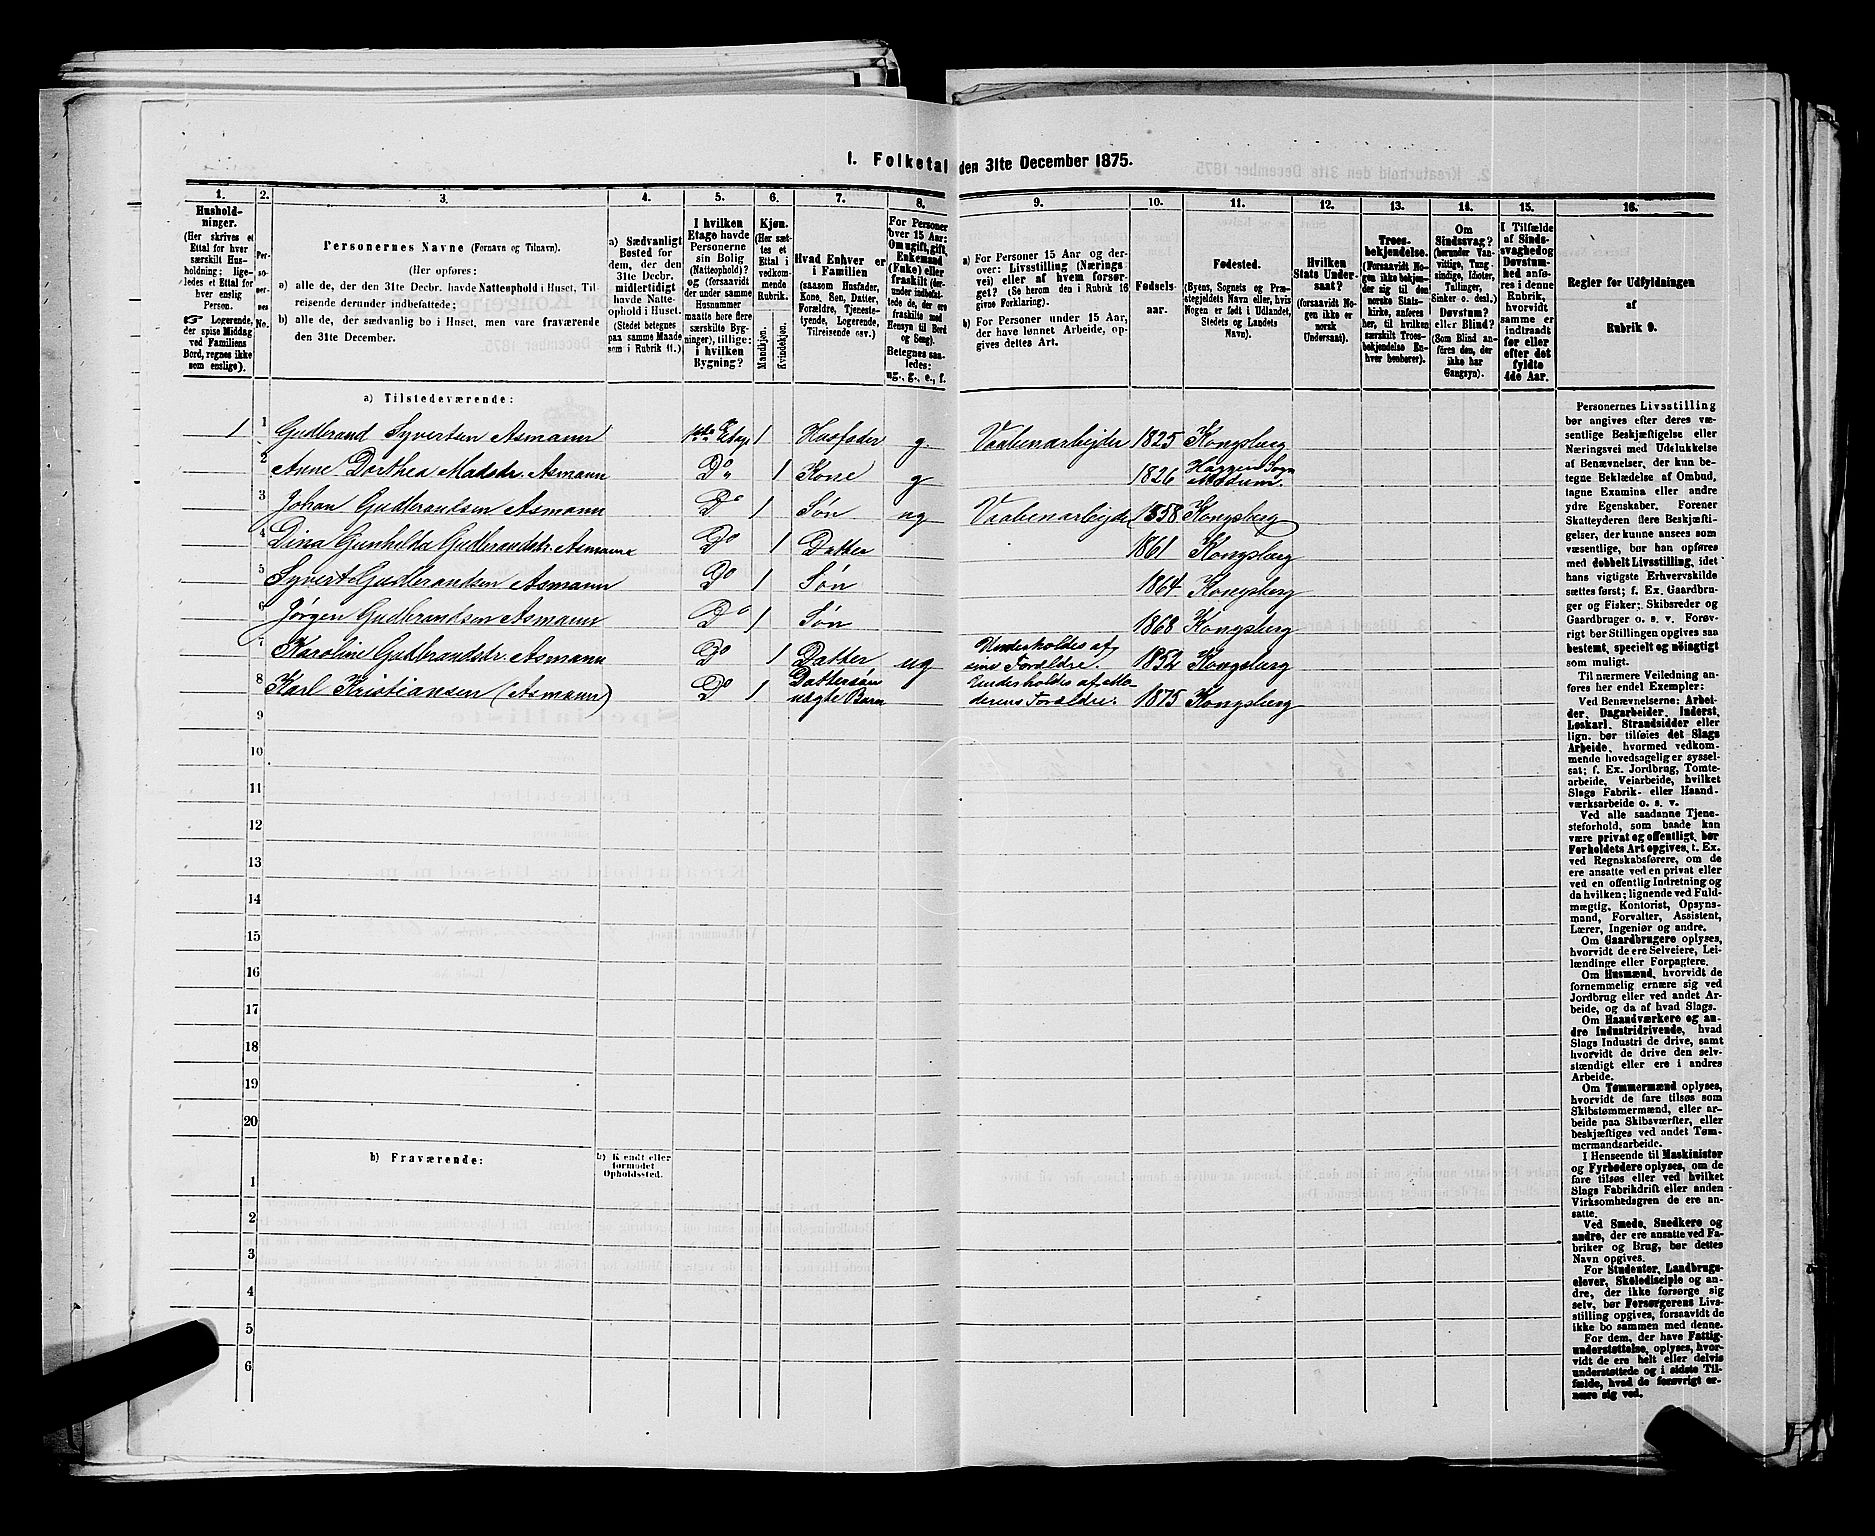 1. Folketal den 31te December 1875.
1. 2. 3. 4. 5. 6. 7. 8. 9. 10. 11. 12. 13. 14. 15. 16.
Husholdninger.
(Her skrives et
Ettal for hver
særskilt Husholdning;
ligeledes et Ettal for
hver enslig
Person.
☞ Logerende,
der spise Middag
ved Familiens
Bord, regnes ikke
som enslige).
Personernes No.
Personernes Navne (Fornavn og Tilnavn).
(Her opføres:
a) alle de, den 31te Decbr. havde Natteophold i Huset, Tilreisende
derunder indbefattede;
b) alle de, der sædvanlig bo i Huset, men vare fraværende
den 31te December.
a) Sædvanligt
Bosted for
dem, der den
31te Decbr.
midlertidigt
havde Natteophold
i Huset.
(Stedet betegnes
paa samme Maade
som i Rubrik 11.)
I hvilken
Etage havde
Personerne
sin Bolig
(Natteophold)?
og (forsaavidt
der under samme
Husnummer
maatte høre flere
særskilte Bygninger),
tillige:
i hvilken
Bygning?
Kjøn.
(Her sættes et
Ettal i
vedkommende
Rubrik.
Mandkjøn.
Kvindekjøn.
Hvad Enhver er
i Familien
(saasom Husfader,
Kone, Søn, Datter,
Forældre, Tjenestetyende,
Logerende,
Tilreisende
osv.)
For Personer
over 15 Aar:
Om ugift, gift,
Enkemand
(Enke) eller
fraskilt (herunder
indbefattede
de, der ere
fraskilte med
Hensyn til Bord
og Seng).
Betegnes saaledes:
ug., g., e., f.
a) For Personer 15 Aar og derover:
Livsstilling (Næringsvei)
eller af hvem forsørget?
(Se herom den i Rubrik 16
givne Forklaring).
b) For Personer under 15 Aar,
der have lønnet Arbeide, opgives
dettes Art.
Fødselsaar.
Fødested.
(Byens, Sognets og Præstegjeldets
Navn eller, hvis
Nogen er født i Udlandet,
Stedets og Landets
Navn).
Hvilken
Stats Undersaat?
(forsaavidt Nogen
ikke er
norsk
Undersaat).
Troesbekjendelse.
(Forsaavidt Nogen
ikke bekjender
sig til den
norske Statskirke,
anføres
her, til hvilken
særskilt Troesbekjendelse
Enhver
henhører).
Om
Sindssvag?
(herunder Vanvittige,
Tungsindige,
Idioter,
Tullinger,
Sinker o. desl.)
Døvstum?
eller Blind?
(Som Blind anføres
den, der
ikke har
Gangsyn).
I Tilfælde
af Sindssvaghed
og
Døvstumhed
anføres
i denne
Rubrik,
hvorvidt
samme er
indtraadt
før eller
efter det
fyldte
4de Aar.
Regler for Udfyldningen
af
Rubrik 9.
a) Tilstedeværende:
1 1 Gudbrand Syvertsen Asmann 1ste Etage 1 Husfader g. Vaabenarbejder 1825 Kongsberg
2 Anne Dorthea Madsdtr. Asmann Do 1 Kone g 1826 Haggen Sogn Modum.
3 Johan Gudbrandsen Asmann Do 1 Søn ug Vaabenarbejder 1858 Kongsberg
4 Dina Gunhilda Gudbrandsdtr. Asmann Do 1 Datter 1861 Kongsberg
5 Syvert Gudbrandsen Asmann Do 1 Søn 1864 Kongsberg
6 Jørgen Gudbrandsen Asmann Do 1 Søn 1868 Kongsberg
7 Karoline Gudbrandsdtr. Asmann Do 1 Datter ug Underholdes af sine Forældre. 1852 Kongsberg
8 Karl Kristiansen (Asmann) Do 1 Dattersøn uægte Barn Underholdes af Moderens Forældre. 1875 Kongsberg
9
10
11
12
13
14
15
16
17
18
19
20
b) Fraværende:
b) Kjendt eller
formodet
Opholdssted.
1
2
3
4
5
6
Personernes Livsstilling
bør angives efter deres væsentlige
Beskjæftigelse eller
Næringsvei med Udelukkelse
af Benævnelser, der kun betegne
Beklædelse af Ombud,
tagne Examina eller andre
ydre Egenskaber. Forener
Skatteyderen flere Beskjæftigelser,
der kunne ansees som
væsentlige, bør han opføres
med dobbelt Livsstilling, idet
hans vigtigste Erhvervskilde
sættes først; f. Ex. Gaardbruger
og Fisker; Skibsreder og
Gaardbruger o. s. v. Forøvrigt
bør Stillingen opgives saa
bestemt, specielt og nøiagtigt
som muligt.
Til nærmere Veiledning anføres
her endel Exempler:
Ved Benævnelserne: Arbeider,
Dagarbeider, Inderst,
Løskarl, Strandsidder eller
lign. bør tilføies det Slags
Arbeide, hvormed vedkommende
hovedsagelig er sysselsat;
f. Ex. Jordbrug, Tomtearbeide,
Veiarbeide, hvilket
Slags Fabrik- eller Haandværksarbeide
o. s. v.
Ved alle saadanne Tjenesteforhold,
som baade kan
være privat og offentligt, bør
Forholdets Art opgives, f. Ex.
ved Regnskabsførere, om de
ere ansatte ved en privat eller
ved en offentlig Indretning og
da hvilken; lignende ved Fuldmægtig,
Kontorist, Opsynsmand,
Forvalter, Assistent,
Lærer, Ingeniør og andre.
Om Gaardbrugere oplyses,
hvorvidt de ere Selveiere, Leilændinge
eller Forpagtere.
Om Husmænd, hvorvidt de
fornemmelig ernære sig ved
Jordbrug eller ved andet Arbeide,
og da af hvad Slags.
Om Haandværkere og andre
Industridrivende, hvad
Slags Industri de drive, samt
hvorvidt de drive den selvstændigt
eller ere i andres
Arbeide.
Om Tømmermænd oplyses,
hvorvidt de fare tilsøs som
Skibstømmermænd, eller arbeide
paa Skibsværfter, eller
beskjæftiges ved andet Tømmermandsarbeide.
I Henseende til Maskinister
og Fyrbødere oplyses, om de
fare tilsøs eller ved hvilket
Slags Fabrikdrift eller anden
Virksomhedsgren de ere ansatte.
Ved Smede, Snedkere og
andre, der ere ansatte ved Fabriker
og Brug, bør dettes
Navn opgives.
For Studenter, Landbrugselever,
Skoledisciple og andre,
der ikke forsørge sig
selv, bør Forsørgerens Livsstilling
opgives, forsaavidt de
ikke bo sammen med denne.
For dem, der have Fattigunderstøttelse,
oplyses, hvorvidt
de ere helt eller delvis
understøttede og i sidste Tilfælde,
hvad de forøvrigt ernære
sig ved.